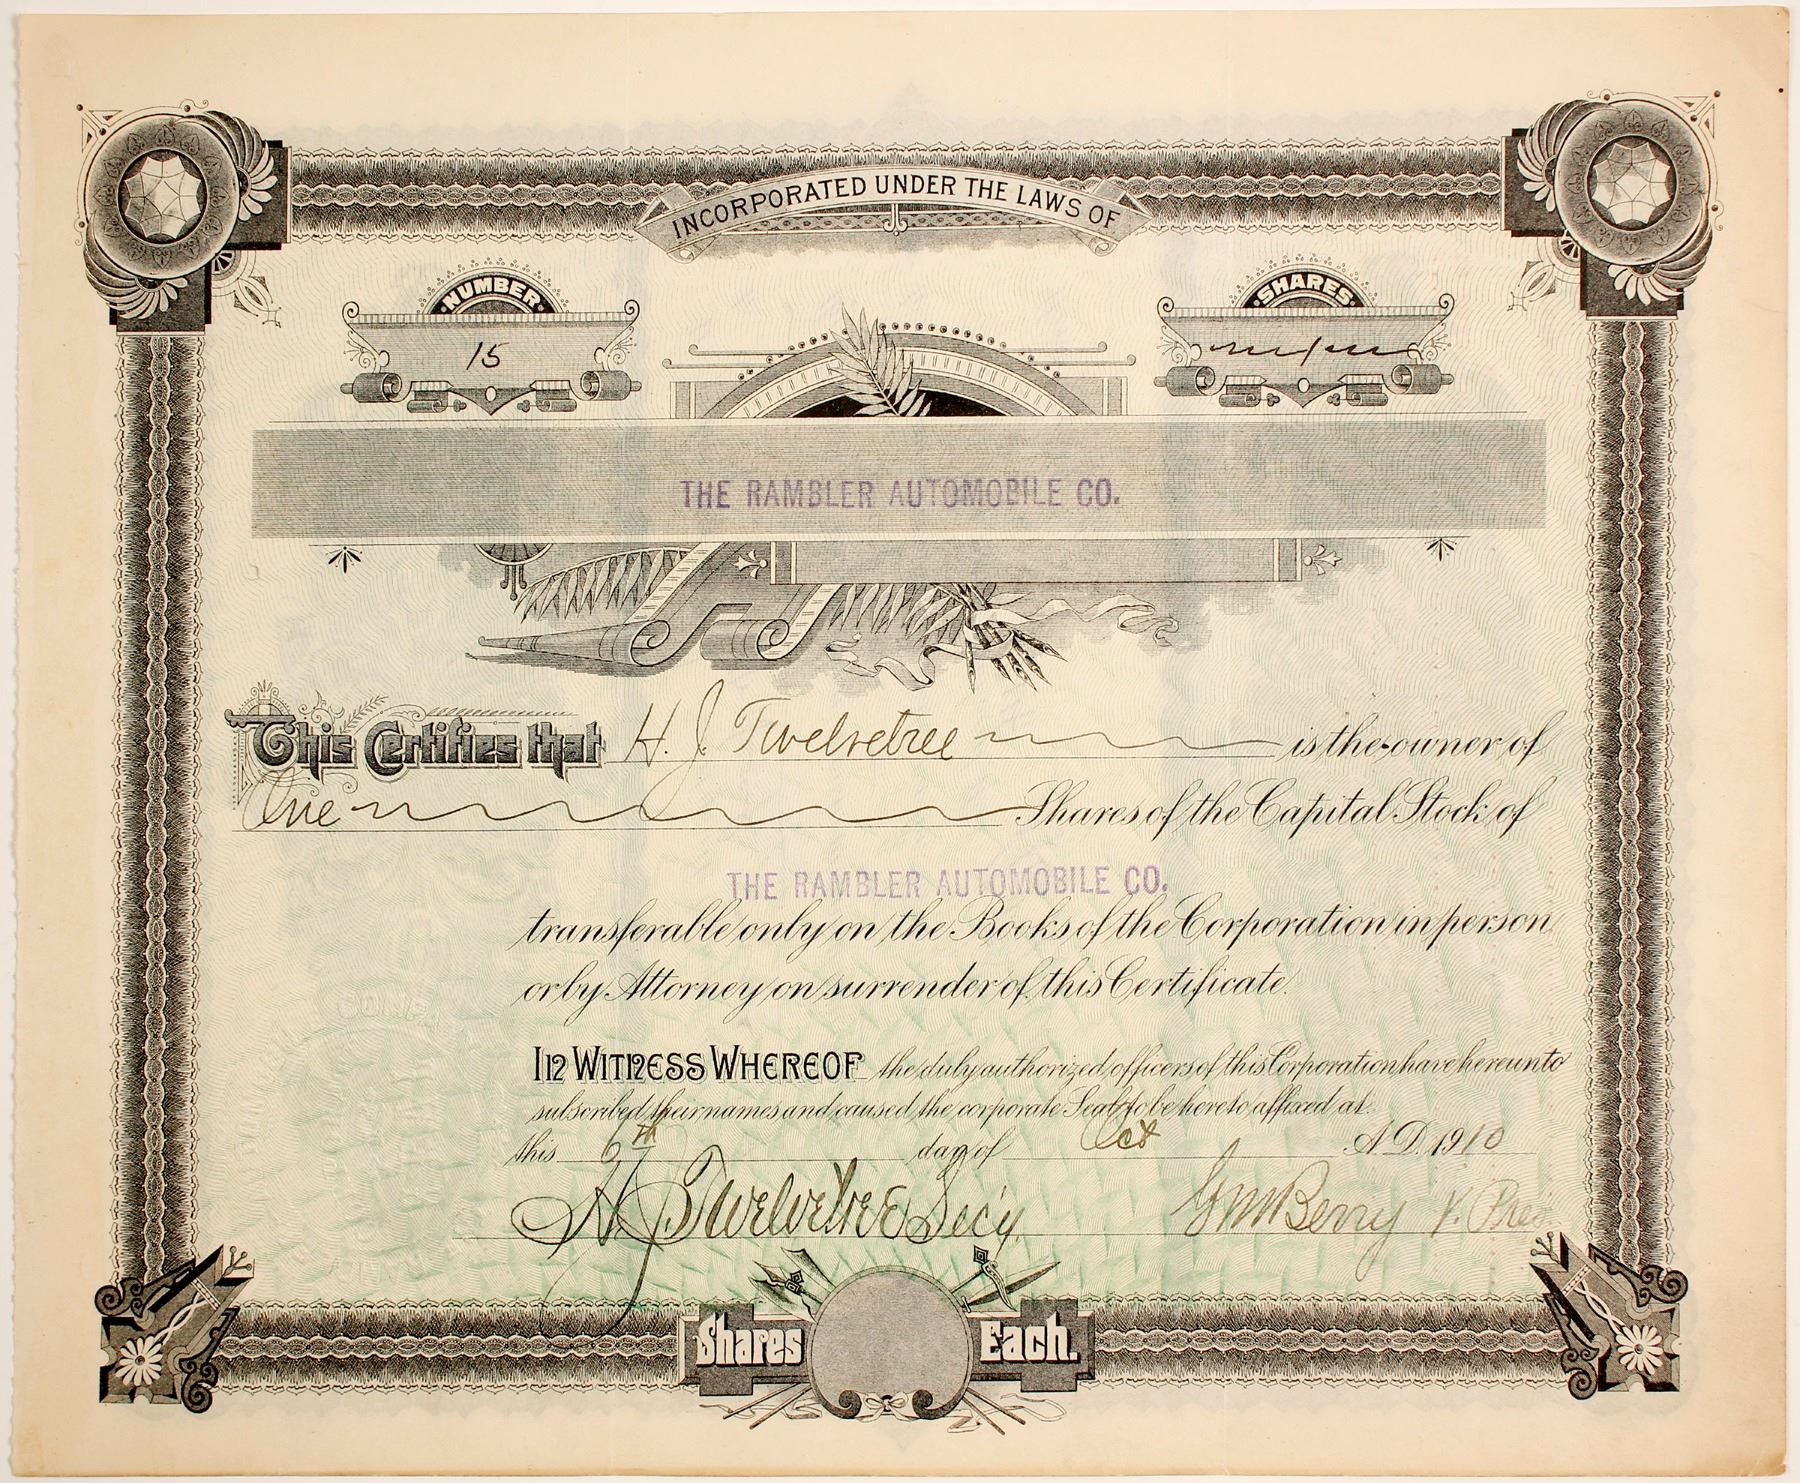 INCORPORATED UNDER THE LAWS OF
NUMBER
15
SHARES
1
THE RAMBLER AUTOMOBILE CO.
This Certifies that H. J. Twelvetree is the owner of
One Shares of the Capital Stock of
THE RAMBLER AUTOMOBILE CO.
transferable only on the Books of the Corporation in person
or by Attorney on surrender of this Certificate.
IN WITNESS WHEREOF the duly authorized officers of this Corporation have hereunto
subscribed their names and caused the corporate Seal to be hereto affixed at
this 6th day of Oct A.D. 1910
H J Twelvetree Sec'y. GM Berry V. Pres
Shares Each.